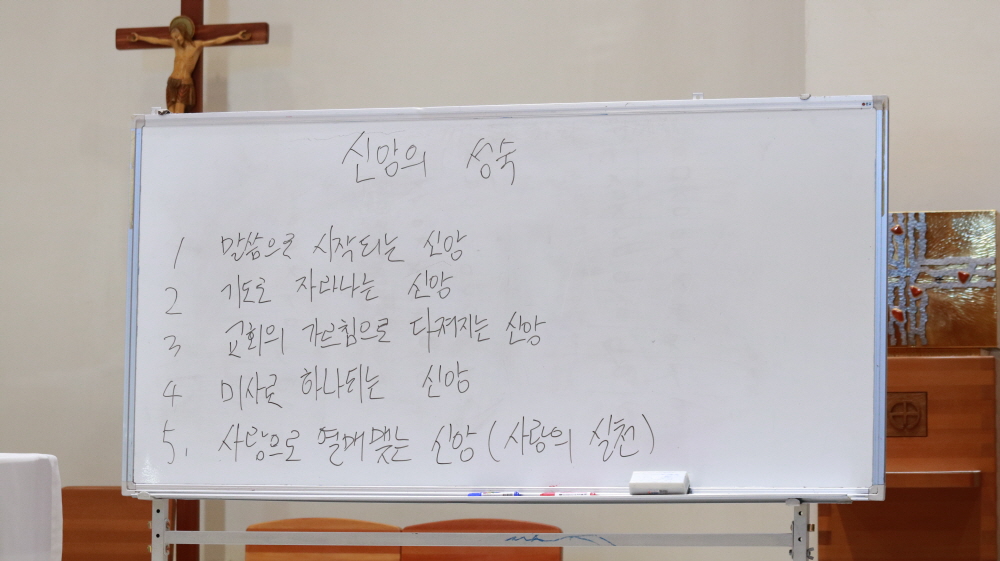 신앙의 성숙
1 말씀으로 시작되는 신앙
2 기도로 자라나는 신앙
3 교회의 가르침으로 다져지는 신앙
4 미사로 하나되는 신앙
5. 사랑으로 열매맺는 신앙 (사랑의 실천)